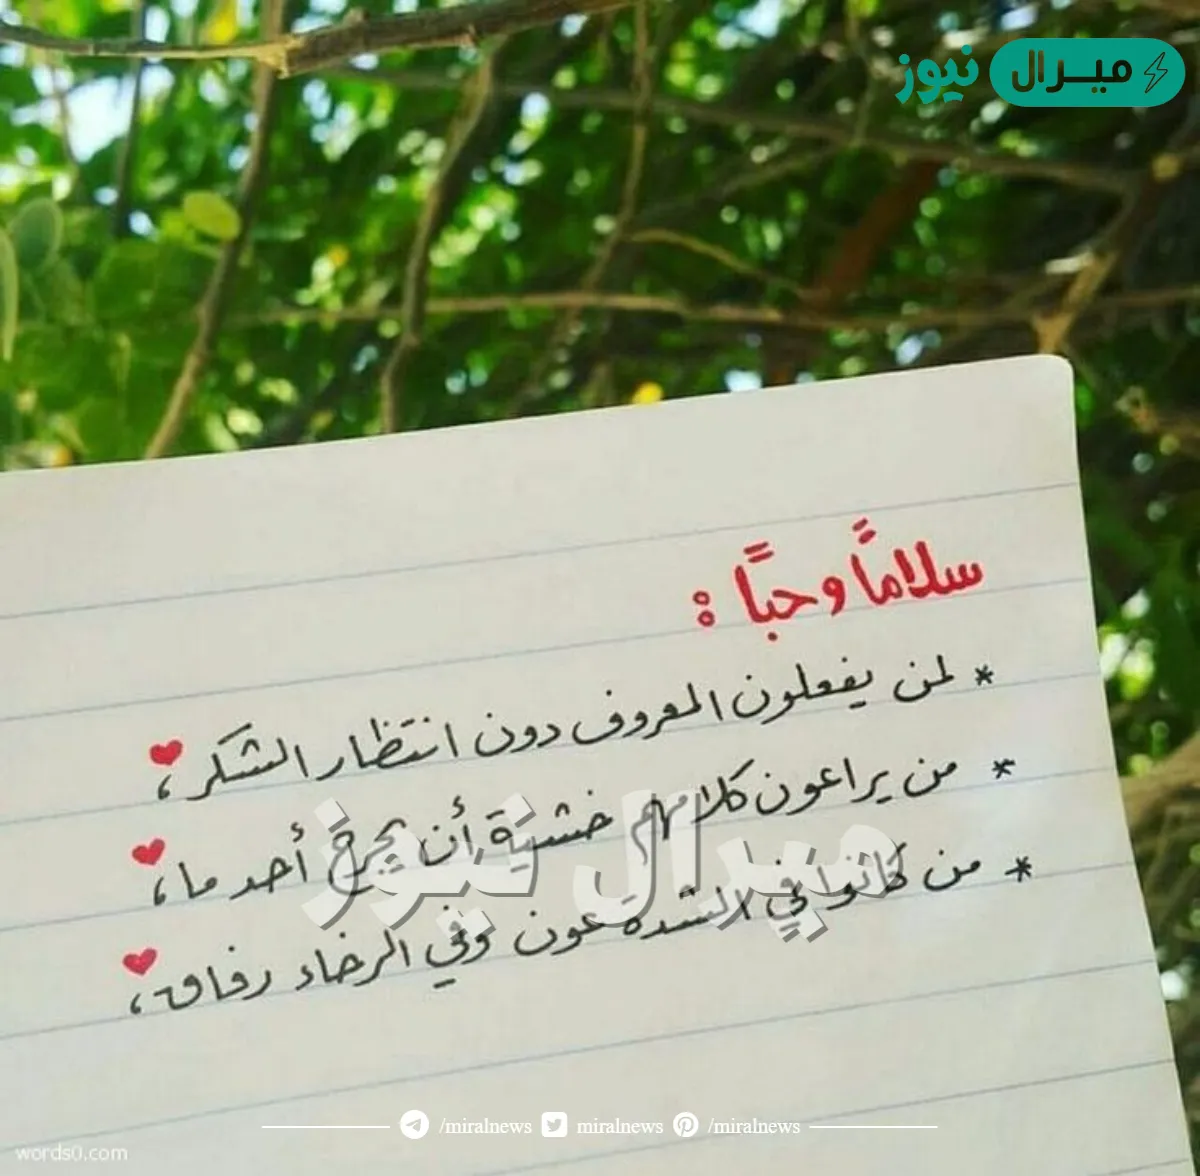 ميرال نيوز
سلامًا وحبًا :
* لمن يفعلون المعروف دون انتظار الشكر ،
* من يراعون كلامهم خشية أن يجرح أحد ما ،
* من كانوا في الشدة عون وفي الرخاء رفاق ،
ميرال نيوز
/miralnews miralnews /miralnews
words0.com